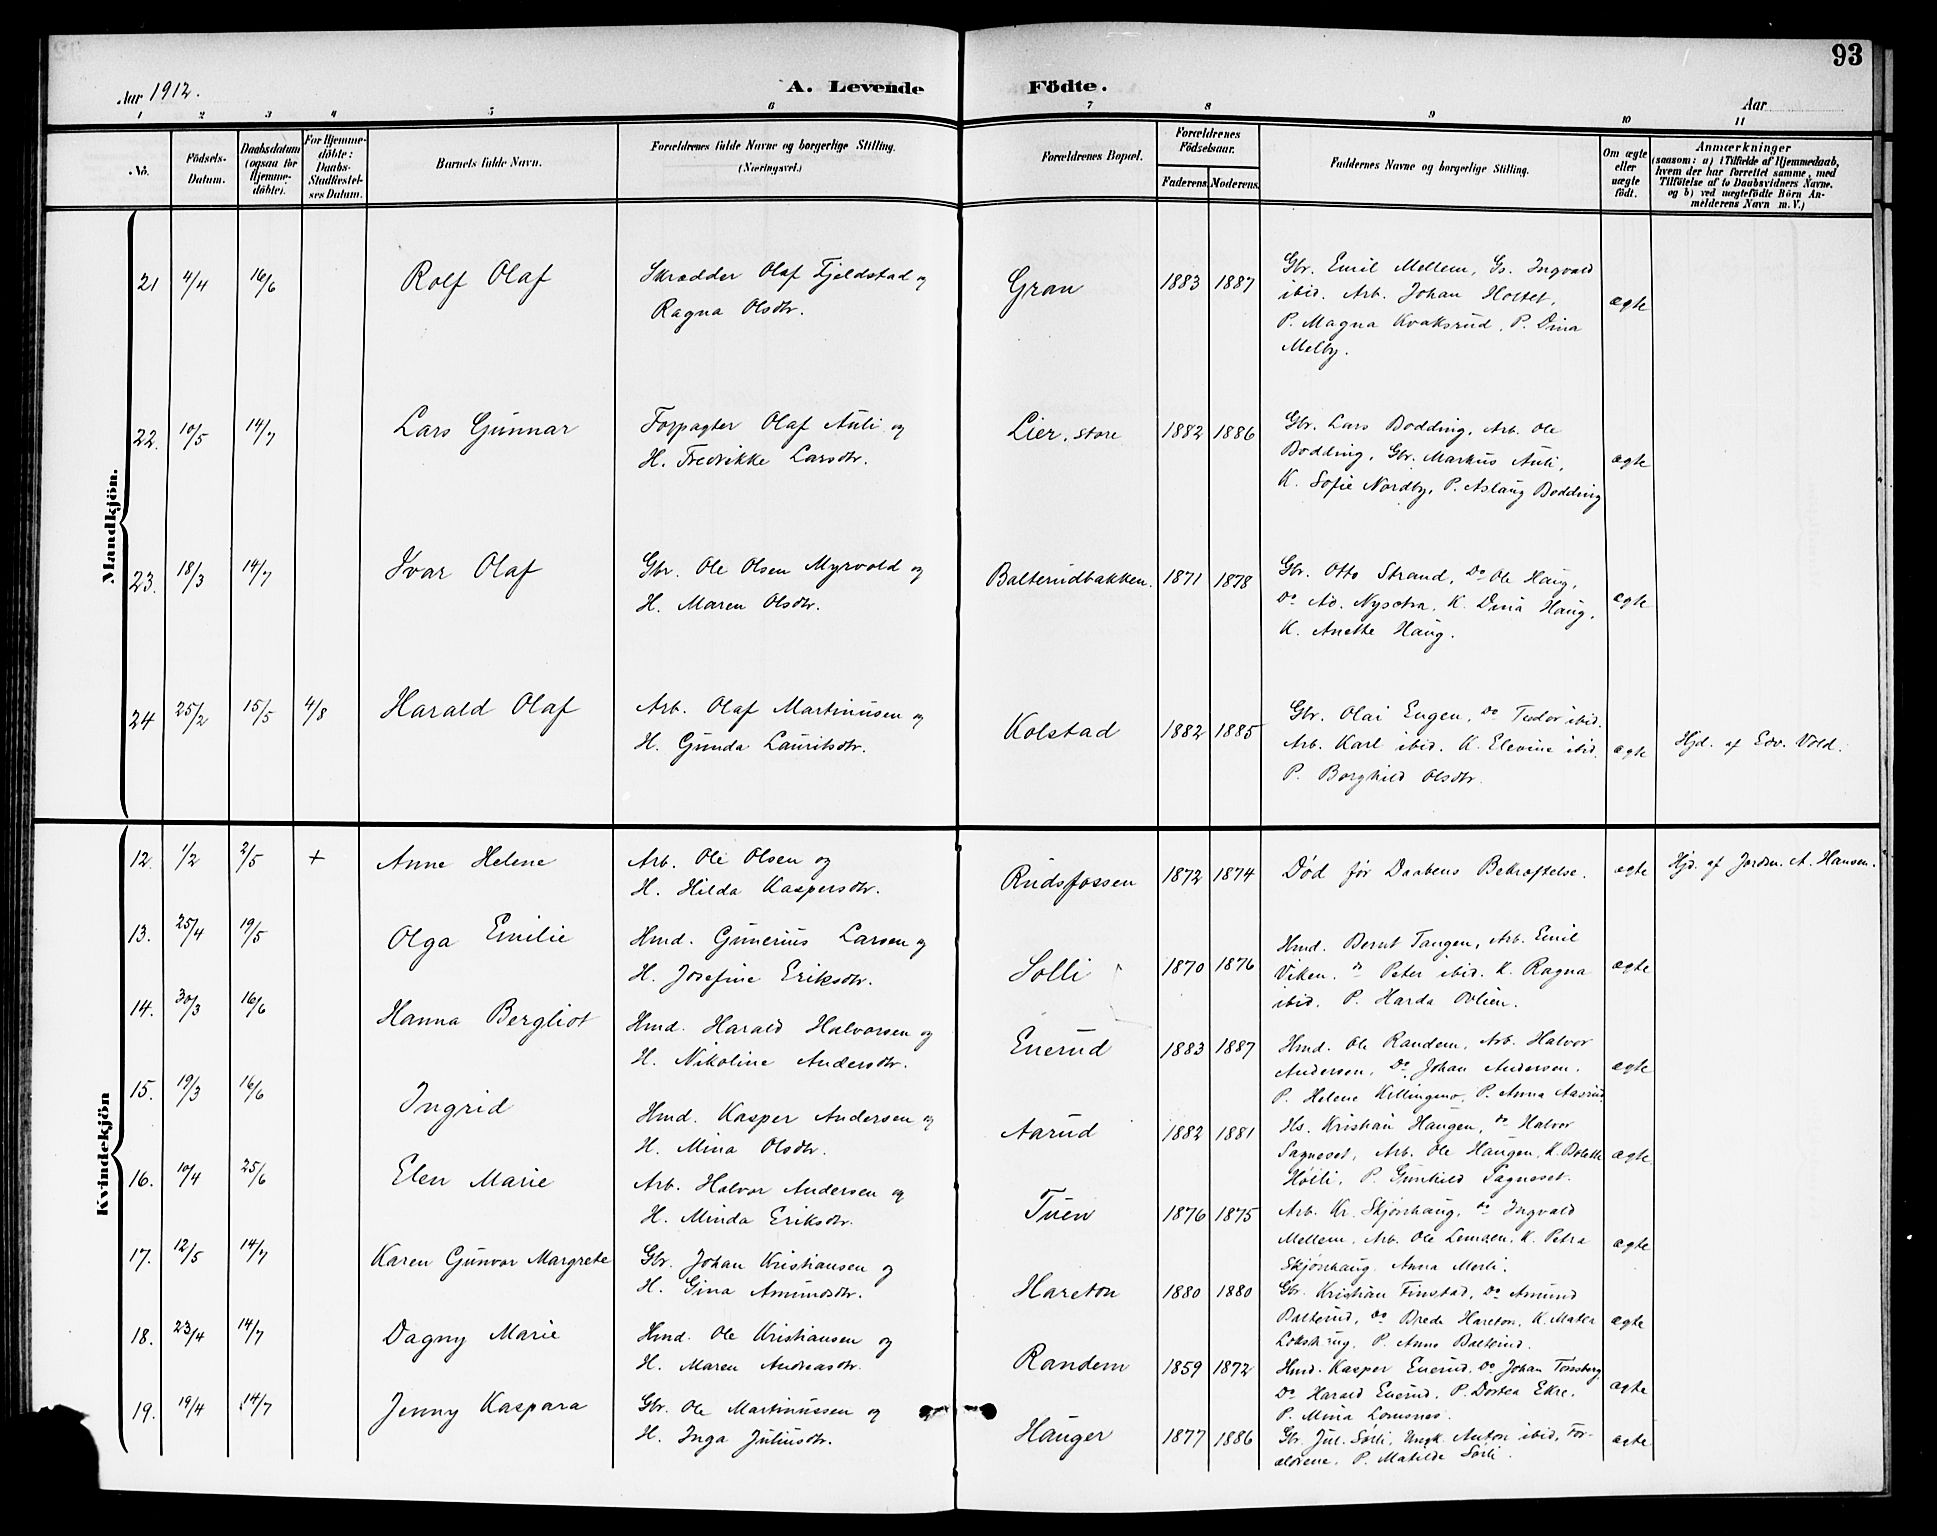 93
Aar 1912.
A. Levende Födte.
Aar
1 2 3 4 5 6 7 8 9 10 11
No.
Födsels-Datum.
Daabsdatum (ogsaa for Hjemme-döbte).
For Hjemme-döbte: Daabs-Stadfæstel-ses Datum.
Barnets fulde Navn.
Forældrenes fulde Navne og borgerlige Stilling.
(Næringsvei.)
Forældrenes Bopæl.
Forældrenes Födselsaar.
Faderens. Moderens.
Faddernes Navne og borgerlige Stilling.
Om ægte eller uægte födt.
Anmærkninger
(saasom: a) i Tilfælde af Hjemmedaab,
hvem der har forrettet samme, med
Tilföielse af to Daabsvidners Navne.
og b) ved uægtefödte Börn An-
melderens Navn m. V.)
Mandkjön.
21 4/4 16/6 Rolf Olaf
Skrædder Olaf Fjeldstad og
Ragna Olsdtr.
Gran 1883 1887
Gbr. Emil Mellem, Gs. Ingvald
ibid. Arb. Johan Holtet,
P. Magna Kvaksrud, P. Dina
Melby.
ægte
22. 10/5 14/7 Lars Gunnar
Forpagter Olaf Auli og
H. Fredrikke Larsdtr.
Lier, store 1882 1886
Gbr. Lars Bodding, Arb. Ole
Bodding, Gbr. Markus Auli,
K. Sofie Nordby, P. Aslaug Bodding
ægte
23. 18/3 14/7 Ivar Olaf
Gbr. Ole Olsen Myrvold og
H. Maren Olsdtr.
Balterudbakken. 1871 1878
Gbr. Otto Strand, Do Ole Haug,
Do Ad. Nysetra, K. Dina Haug,
K. Anette Haug.
ægte
24 25/2 15/5 4/8 Harald Olaf
Arb. Olaf Martinusen og
H. Gunda Lauritsdtr.
Kolstad 1882 1885
Gbr. Olai Engen, Do Tudor ibid.
Arb. Karl ibid. K. Elevine ibid.
P. Borghild Olsdtr.
ægte
Hjd. af Edv. Vold.
Kvindekjön
12. 1/2 2/5 + Anne Helene
Arb. Ole Olsen og
H. Hilda Kaspersdtr.
Rudsfossen 1872 1874
Død før Daabens Bekræftelse.
ægte
Hjd. af Jordm. A. Hansen.
13. 25/4 19/5 Olga Emilie
Hmd. Gunerius Larsen og
H. Josefine Eriksdtr.
Solli 1870 1876
Hmd. Bernt Tangen, Arb. Emil
Viken, Do Peter ibid. K. Ragna
ibid. P. Harda
ægte
14. 30/3 16/6 Hanna Bergliot
Hmd. Harald Halvorsen og
H. Nikoline Andersdtr.
Enerud 1883 1887
Hmd. Ole Randem, Arb. Halvor
Andersen, Do Johan Andersen.
P. Helene Killingmo, P. Anna Aasrud
ægte
15. 19/3 16/6 Ingrid
Hmd. Kasper Andersen og
H. Mina Olsdtr.
Aarud 1882 1881
Hs. Kristian Haugen, Do Halvor
Sagneset, Arb. Ole Haugen, K. Bolette
Høili, P. Gunhild Sagneset.
ægte
16. 10/4 25/6 Elen Marie
Arb. Halvor Andersen og
H. Minda Eriksdtr.
Tuen 1876 1875
Arb. Kr. Skjønhaug, Do Ingvald
Mellem, Arb. Ole K. Petra
Skjønhaug. Anna
ægte
17. 12/5 14/7 Karen Gunvor Margrete
Gbr. Johan Kristiansen og
H. Gina Amundsdtr.
Hareton 1880 1880
Gbr. Kristian Finstad, Do Amund
Balterud, Do Brede Hareton, K. Matea
P. Anne Balterud.
ægte
18. 23/4 14/7 Dagny Marie
Hmd. Ole Kristiansen og
H. Maren Andreasdtr.
Randem 1859 1872
Hmd. Kasper Enerud, Do Johan Tonsberg,
Do Harald Enerud, P. Dortea Ekre,
P. Mina
ægte
19. 19/4 14/7 Jenny Kaspara
Gbr. Ole Martinussen og
H. Inga Juliusdtr.
Hauger 1877 1886
Gbr. Jul. Sørli, Ungk. Anton ibid, For-
ældrene, P. Matilde Sørli.
ægte